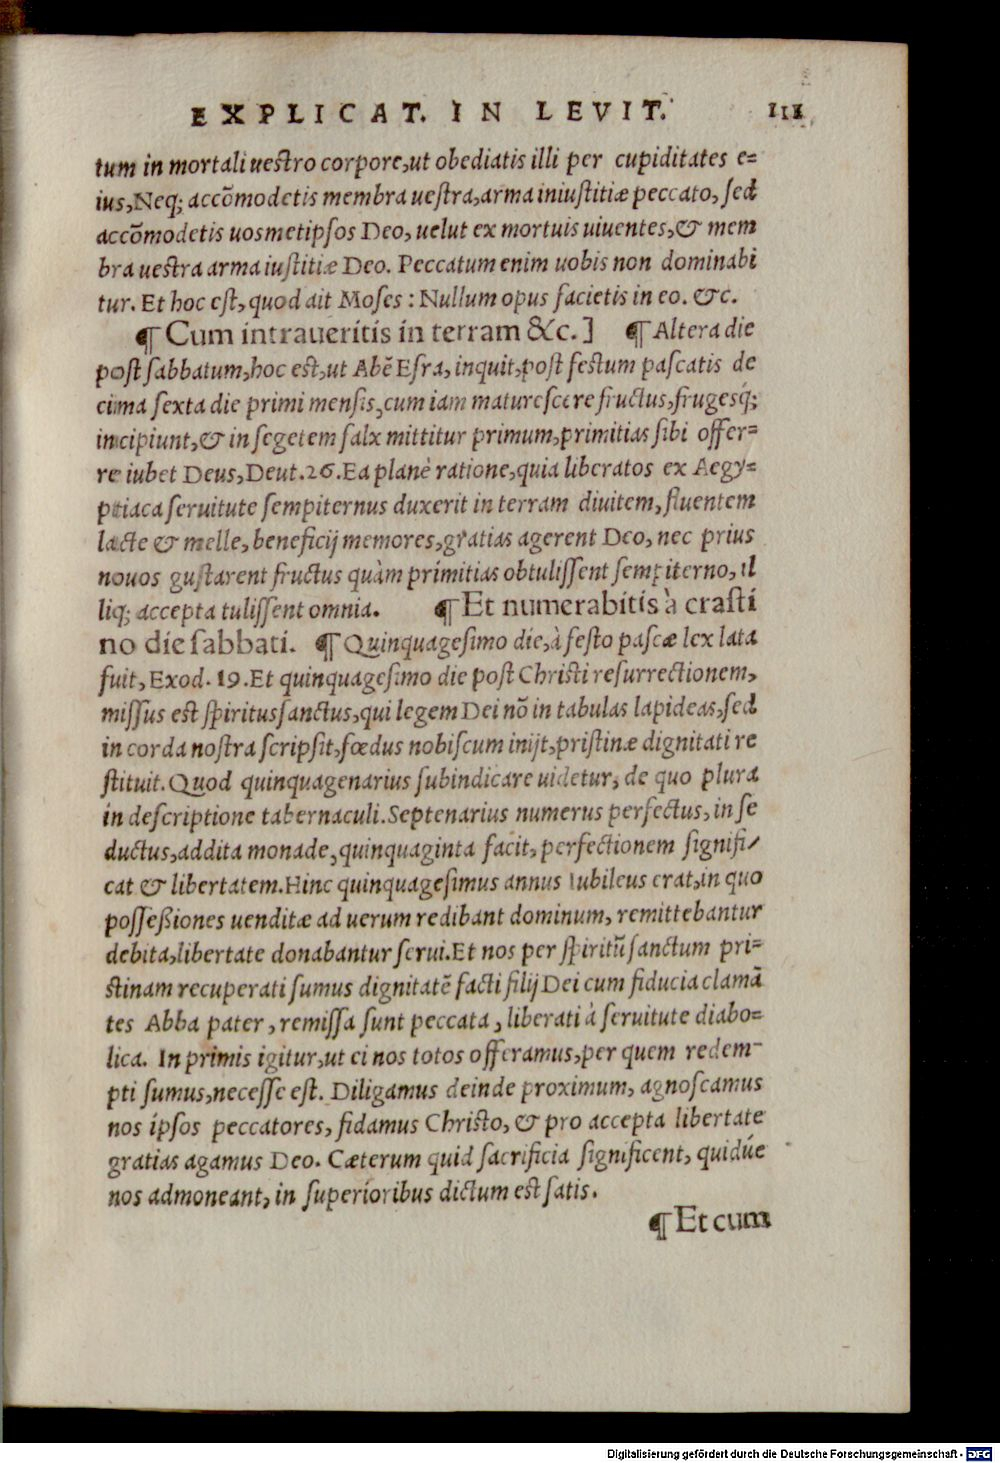 EXPLICAT. IN LEVIT. 111
tum in mortali uestro corpore, ut obediatis illi per cupiditates e=
ius, Neq; accōmodetis membra uestra, arma iniustitiæ peccato, sed
accōmodetis uosmetipsos Deo, uelut ex mortuis uiuentes, & mem
bra uestra arma iustitiæ Deo. Peccatum enim uobis non dominabi
tur. Et hoc est, quod ait Moses: Nullum opus facietis in eo. &c.
¶ Cum intraueritis in terram &c.] ¶ Altera die
post sabbatum, hoc est, ut Abē Esra, inquit, post festum pascatis de
cima sexta die primi mensis, cum iam maturescere fructus, frugesq́;
incipiunt, & in segetem falx mittitur primum, primitias sibi offer=
re iubet Deus, Deut. 26. Ea planè ratione, quia liberatos ex Aegy=
ptiaca seruitute sempiternus duxerit in terram diuitem, fluentem
lacte & melle, beneficij memores, gratias agerent Deo, nec prius
nouos gustarent fructus quàm primitias obtulissent sempiterno, il
liq; accepta tulissent omnia. ¶ Et numerabitis à crasti
no die sabbati. ¶ Quinquagesimo die, à festo pascæ lex lata
fuit, Exod. 19. Et quinquagesimo die post Christi resurrectionem,
missus est spiritus sanctus, qui legem Dei nō in tabulas lapideas, sed
in corda nostra scripsit, fœdus nobiscum inijt, pristinæ dignitati re
stituit. Quod quinquagenarius subindicare uidetur, de quo plura
in descriptione tabernaculi. Septenarius numerus perfectus, in se
ductus, addita monade, quinquaginta facit, perfectionem signifi/
cat & libertatem. Hinc quinquagesimus annus Iubileus erat, in quo
possessiones uenditæ ad uerum redibant dominum, remittebantur
debita, libertate donabantur serui. Et nos per spiritū sanctum pri=
stinam recuperati sumus dignitatē facti filij Dei cum fiducia clamā
tes Abba pater, remissa sunt peccata, liberati à seruitute diabo=
lica. In primis igitur, ut ei nos totos offeramus, per quem redem-
pti sumus, necesse est. Diligamus deinde proximum, agnoscamus
nos ipsos peccatores, fidamus Christo, & pro accepta libertate
gratias agamus Deo. Cæterum quid sacrificia significent, quidúe
nos admoneant, in superioribus dictum est satis.
¶ Et cum
Digitalisierung gefördert durch die Deutsche Forschungsgemeinschaft - DFG